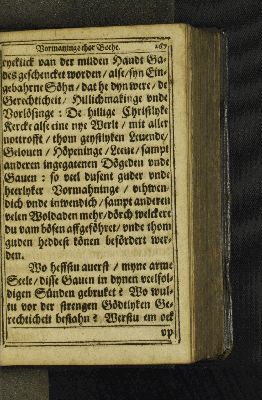 Vormaninge thor Bothe. 267
rycklick van der milden Handt Ga-
des geschencket worden / alse / syn Ein-
gebahrne Söhn / dat he dyn were / de
Gerechticheit / Hillichmakinge vnde
Vorlösinge : De hillige Christlyke
Kercke alse eine nye Werlt / mit aller
nottrofft / thom geystlyken Leuende /
Gelouen / Höpeninge / Leue / sampt
anderen ingegatenen Dögeden vnde
Gauen : so veel dusent guder vnde
heerlyker Vormahninge / vthwen-
dich vnde inwendich / sampt anderen
velen Woldaden mehr / dörch welckere
du vam bösen affgeföhret / vnde thom
guden heddest können befördert wer-
den.
Wo heffstu auerst / myne arme
Seele / disse Gauen in dynen veelfol-
digen Sünden gebruket? Wo wul-
tu vor der strengen Gödtlyken Ge-
rechticheit bestahn? Werstu em ock
vp